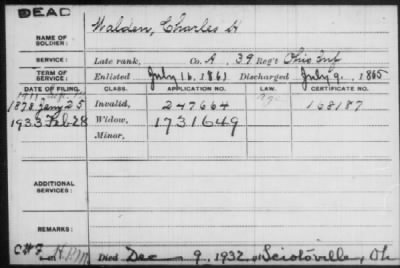 DEAD
NAME OF SOLDIER: Walden, Charles H
SERVICE: Late rank, Co. A, 39 Reg't Ohio Inf
TERM OF SERVICE: Enlisted July 16, 1861 Discharged July 9, 1865
DATE OF FILING. CLASS. APPLICATION NO. LAW. CERTIFICATE NO.
1878 Jany 25 Invalid, 247664 168187
1933 Feb 28 Widow, 1731649
Minor,
ADDITIONAL SERVICES:
REMARKS:
Died Dec 9, 1932 at Sciotoville, Oh